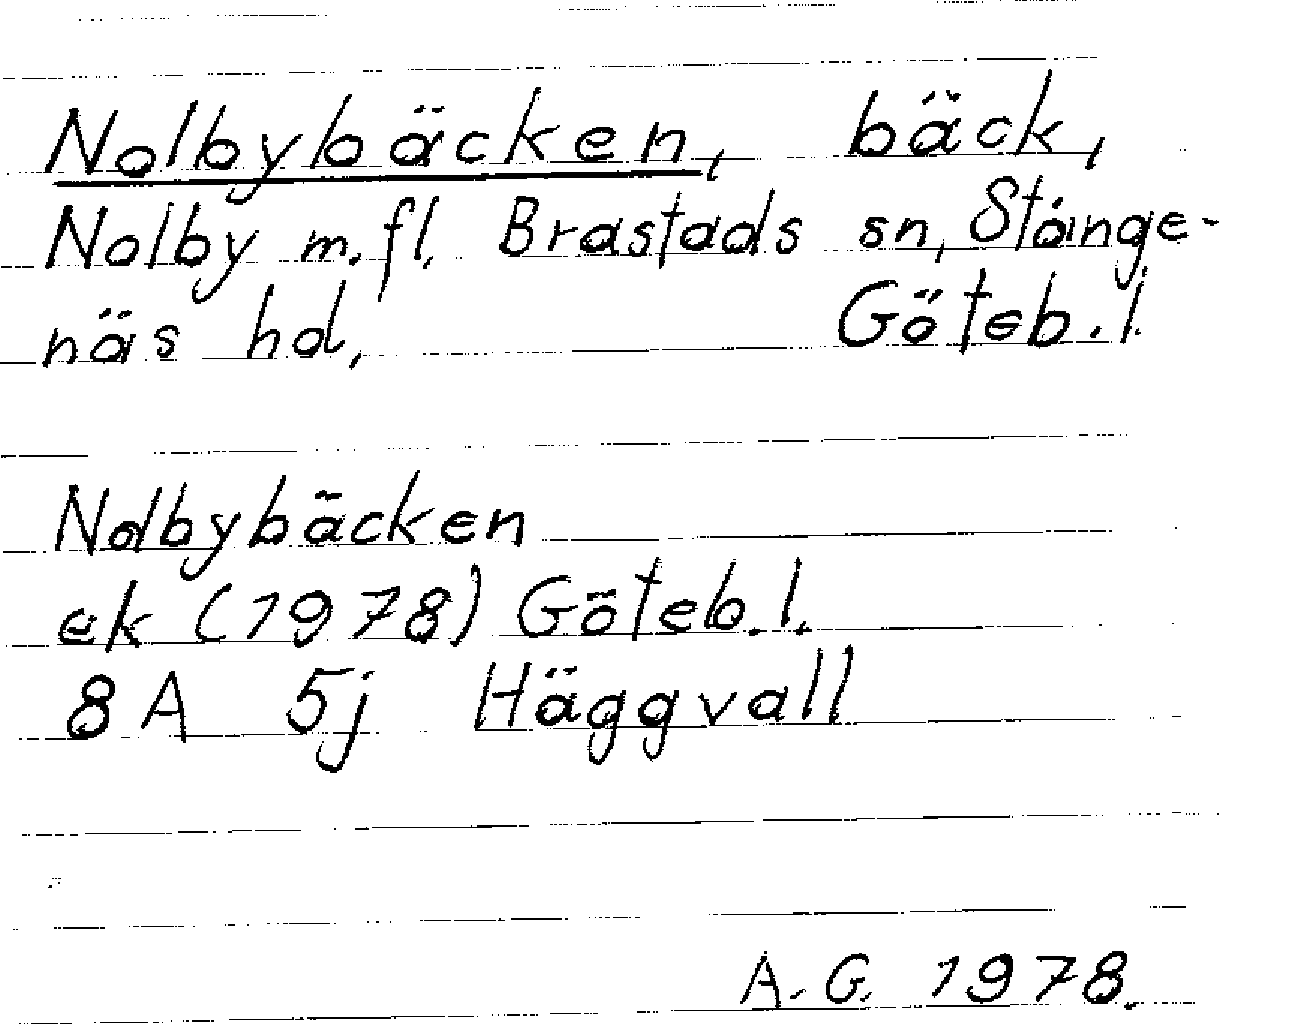 Nolbybäcken, bäck,
Nolby m.fl. Brastads sn, Stånge-
näs hd, Göteb.l.
Nolbybäcken
ek (1978) Göteb.l.
8A 5j Häggvall
A.G. 1978.